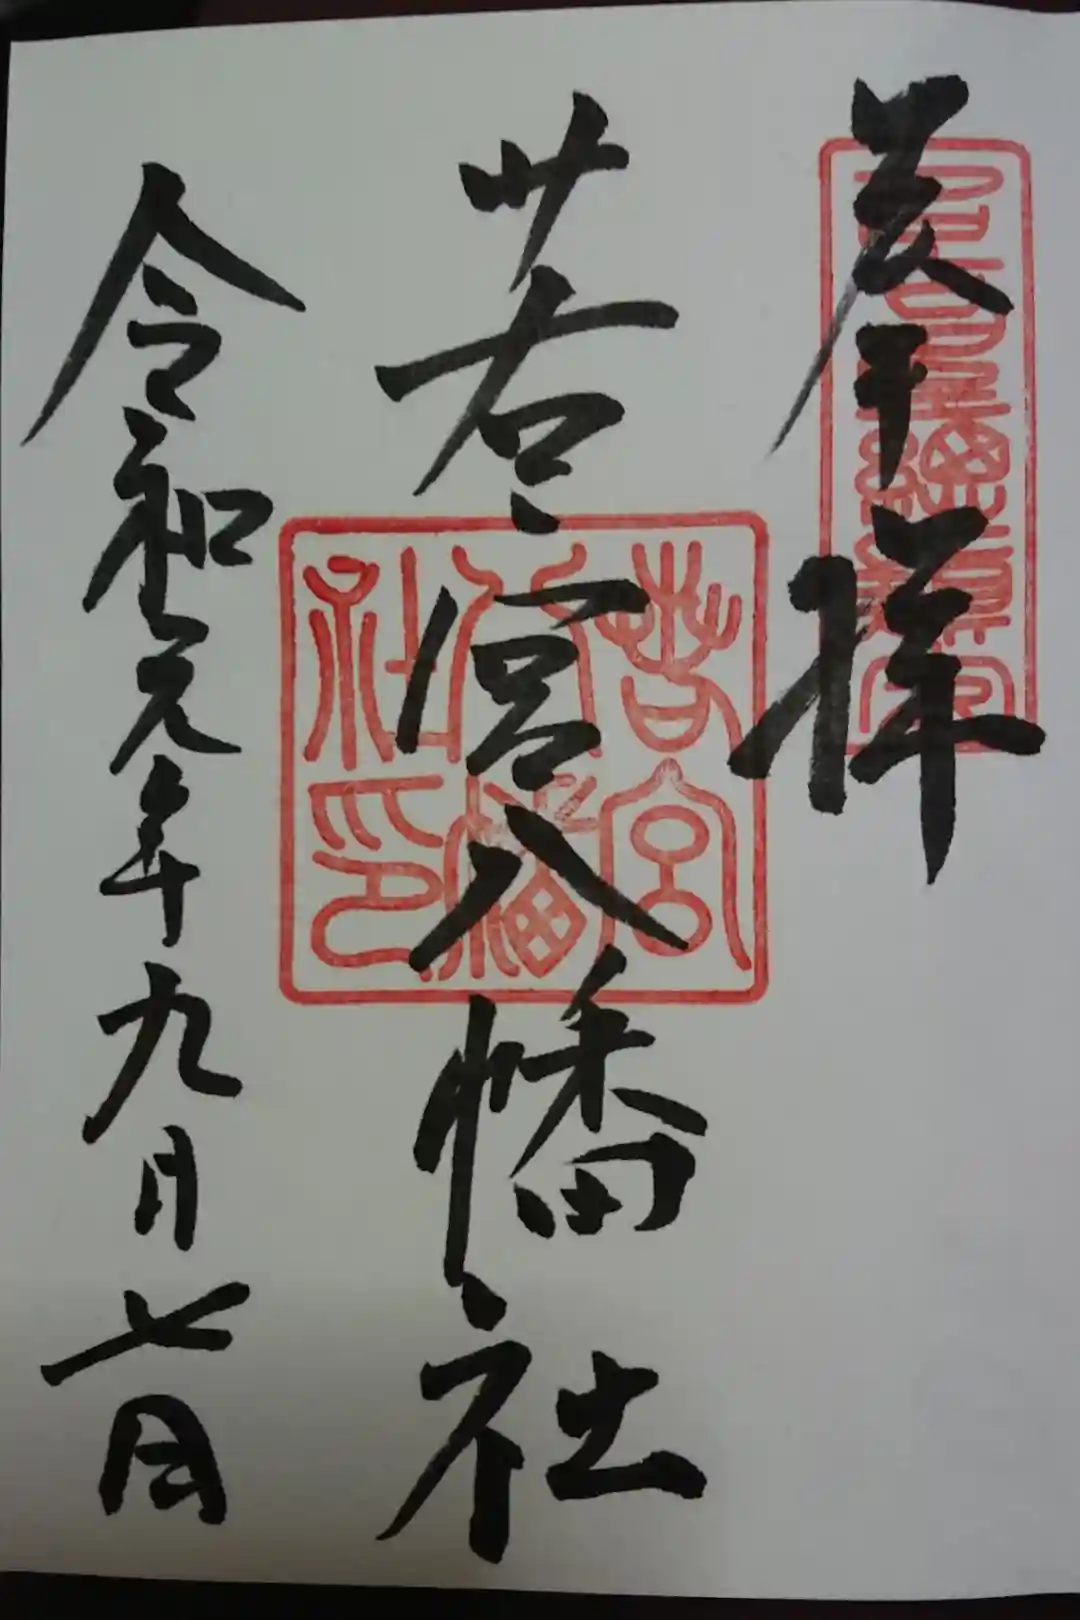 奉拝
若宮八幡社
令和元年九月七日
若宮
八幡
社印